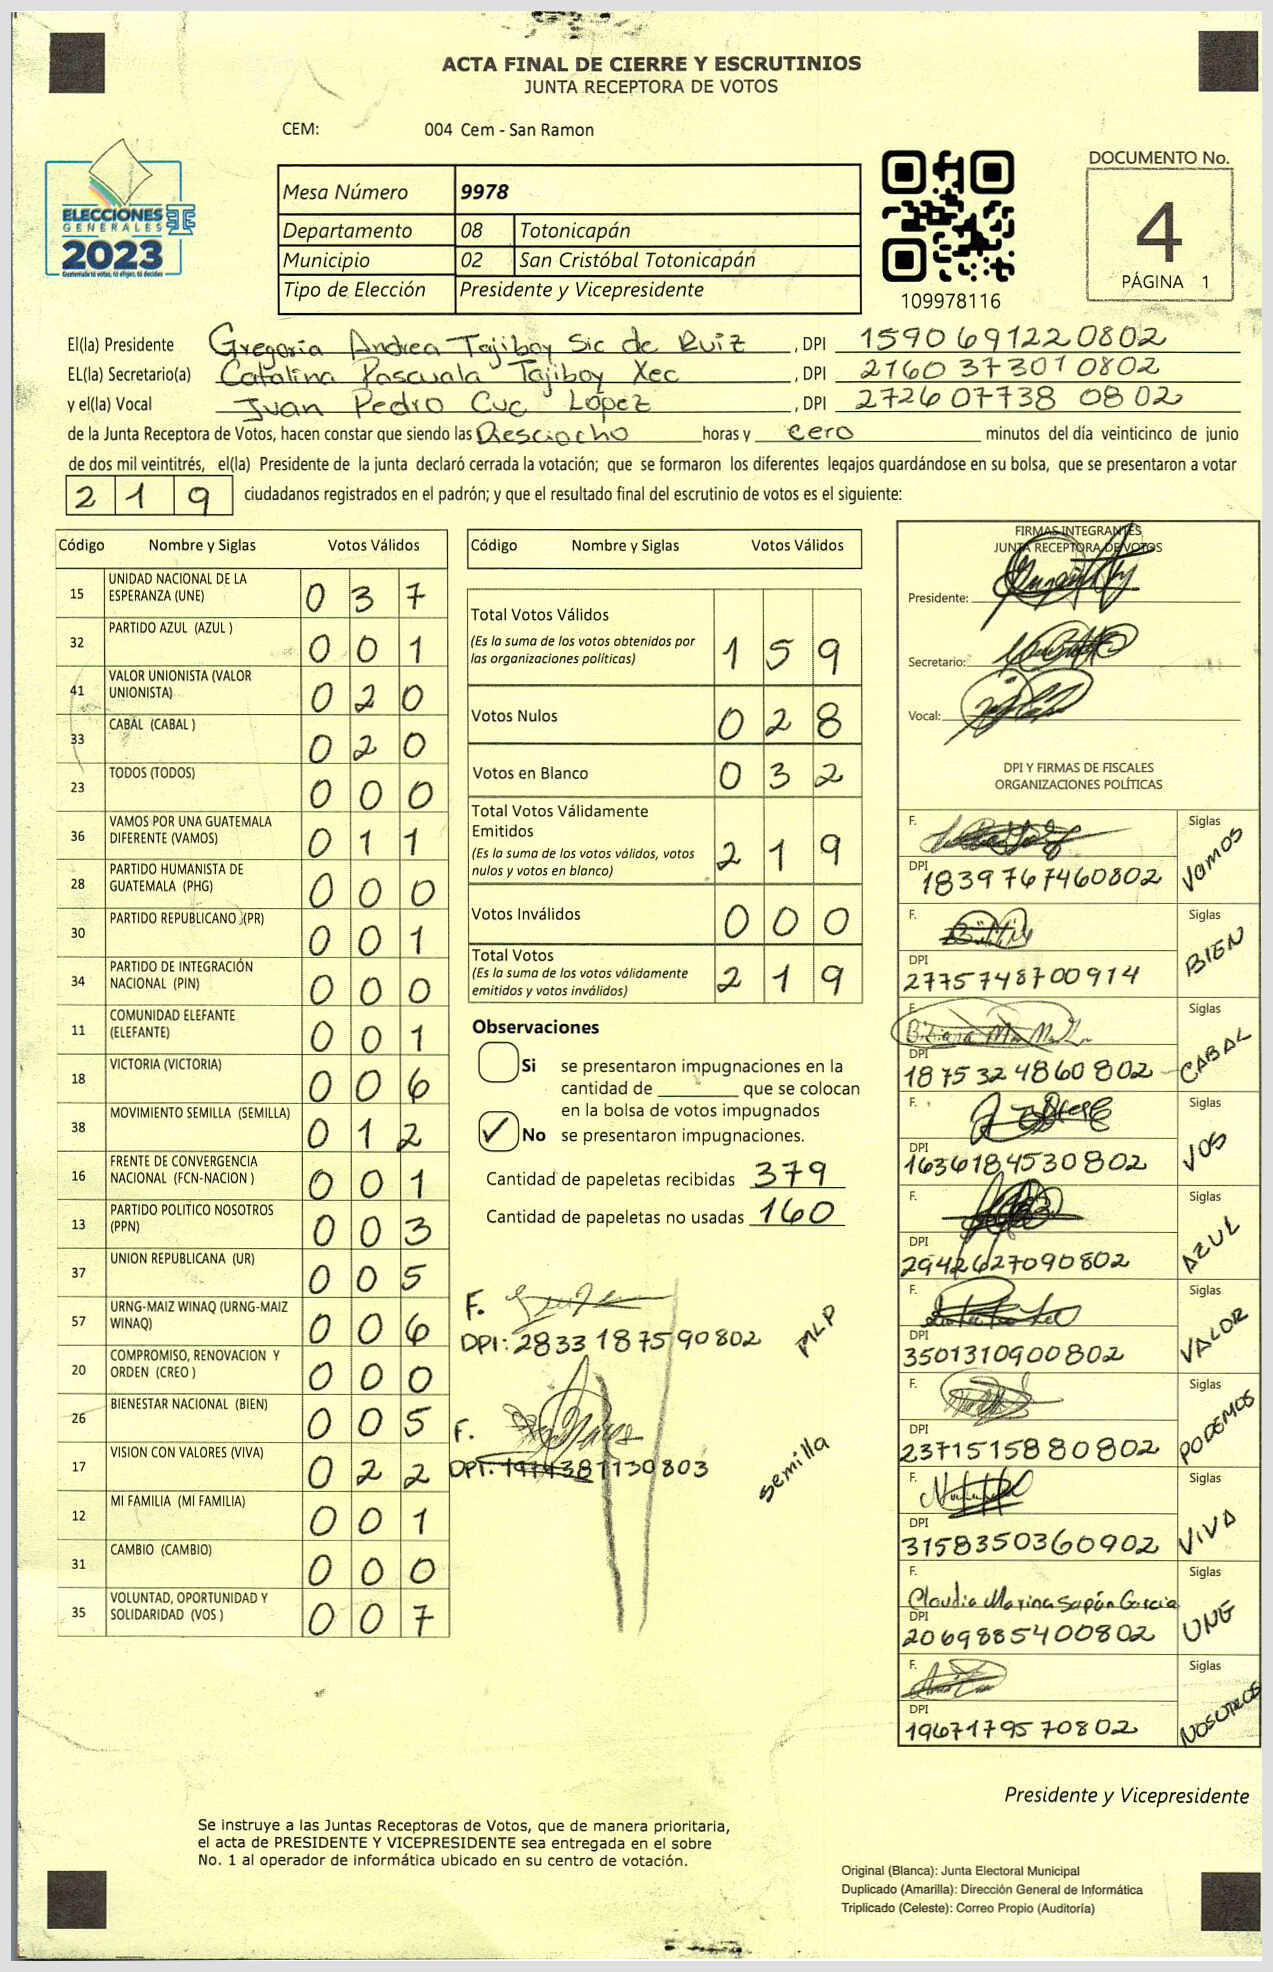 ACTA FINAL DE CIERRE Y ESCRUTINIOS
JUNTA RECEPTORA DE VOTOS
CEM: 004 Cem - San Ramon
ELECCIONES
GENERALES
2023
Guatemala tú votas, tú eliges, tú decides
Mesa Número 9978
Departamento 08 Totonicapán
Municipio 02 San Cristóbal Totonicapán
Tipo de Elección Presidente y Vicepresidente
109978116
DOCUMENTO No.
4
PÁGINA 1
El(la) Presidente Gregoria Andrea Tajiboy Sic de Ruiz , DPI 1590691220802
EL(la) Secretario(a) Catalina Pascuala Tajiboy Xec , DPI 2160373010802
y el(la) Vocal Juan Pedro Cuc López , DPI 2726077380802
de la Junta Receptora de Votos, hacen constar que siendo las Diesciocho horas y cero minutos del día veinticinco de junio
de dos mil veintitrés, el(la) Presidente de la junta declaró cerrada la votación; que se formaron los diferentes legajos guardándose en su bolsa, que se presentaron a votar
219 ciudadanos registrados en el padrón; y que el resultado final del escrutinio de votos es el siguiente:
Código Nombre y Siglas Votos Válidos
15 UNIDAD NACIONAL DE LA ESPERANZA (UNE) 037
32 PARTIDO AZUL (AZUL ) 001
41 VALOR UNIONISTA (VALOR UNIONISTA) 020
33 CABAL (CABAL ) 020
23 TODOS (TODOS) 000
36 VAMOS POR UNA GUATEMALA DIFERENTE (VAMOS) 011
28 PARTIDO HUMANISTA DE GUATEMALA (PHG) 000
30 PARTIDO REPUBLICANO (PR) 001
34 PARTIDO DE INTEGRACIÓN NACIONAL (PIN) 000
11 COMUNIDAD ELEFANTE (ELEFANTE) 001
18 VICTORIA (VICTORIA) 006
38 MOVIMIENTO SEMILLA (SEMILLA) 012
16 FRENTE DE CONVERGENCIA NACIONAL (FCN-NACION ) 001
13 PARTIDO POLITICO NOSOTROS (PPN) 003
37 UNION REPUBLICANA (UR) 005
57 URNG-MAIZ WINAQ (URNG-MAIZ WINAQ) 006
20 COMPROMISO, RENOVACION Y ORDEN (CREO ) 000
26 BIENESTAR NACIONAL (BIEN) 005
17 VISION CON VALORES (VIVA) 022
12 MI FAMILIA (MI FAMILIA) 001
31 CAMBIO (CAMBIO) 000
35 VOLUNTAD, OPORTUNIDAD Y SOLIDARIDAD (VOS ) 007
Código Nombre y Siglas Votos Válidos
Total Votos Válidos
(Es la suma de los votos obtenidos por
las organizaciones políticas) 159
Votos Nulos 028
Votos en Blanco 032
Total Votos Válidamente
Emitidos
(Es la suma de los votos válidos, votos
nulos y votos en blanco) 219
Votos Inválidos 000
Total Votos
(Es la suma de los votos válidamente
emitidos y votos inválidos) 219
Observaciones
Si se presentaron impugnaciones en la
cantidad de ________ que se colocan
en la bolsa de votos impugnados
✓ No se presentaron impugnaciones.
Cantidad de papeletas recibidas 379
Cantidad de papeletas no usadas 160
F.
DPI: 2833187590802 MLP
F.
DPI: 1974381130803 semilla
FIRMAS INTEGRANTES
JUNTA RECEPTORA DE VOTOS
Presidente:
Secretario:
Vocal:
DPI Y FIRMAS DE FISCALES
ORGANIZACIONES POLÍTICAS
F. Siglas
DPI 1839767460802 Vamos
F. Siglas
DPI 2775748700914 BIEN
F. Siglas
DPI 1875324860802 CABAL
F. Siglas
DPI 1636184530802 VOS
F. Siglas
DPI 2942627090802 AZUL
F. Siglas
DPI 3501310900802 VALOR
F. Siglas
DPI 2371515880802 PODEMOS
F. Siglas
DPI 3158350360902 VIVA
F. Claudia Marina Sapón García Siglas
DPI 2069885400802 UNE
F. Siglas
DPI 1967179570802 NOSOTROS
Presidente y Vicepresidente
Se instruye a las Juntas Receptoras de Votos, que de manera prioritaria,
el acta de PRESIDENTE Y VICEPRESIDENTE sea entregada en el sobre
No. 1 al operador de informática ubicado en su centro de votación.
Original (Blanca): Junta Electoral Municipal
Duplicado (Amarilla): Dirección General de Informática
Triplicado (Celeste): Correo Propio (Auditoría)